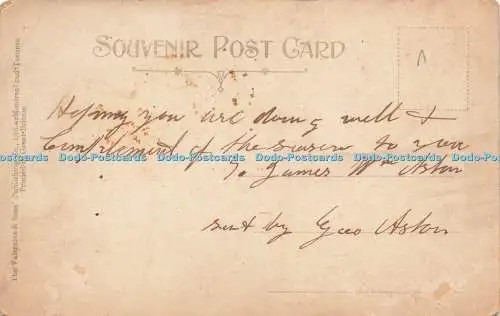 SOUVENIR POST CARD
Hoping you are doing well &
Complement of the season to you
To James Wm Aston
sent by Geo Aston
Dodo-Postcards Dodo-Postcards Dodo-Postcards Dodo-Postcards Dodo-Postcards
The Valentine & Sons' Publishing Co., Ltd., Montreal and Toronto
Printed in Great Britain